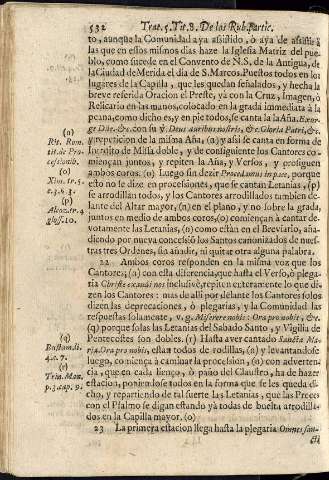 532 Trat. 5. Tit. 8. De las Rub. partic.
to, aunque la Comunidad aya asistido, ò aya de asistir à
las que en estos mismos dias haze la Iglesia Matriz del pue-
blo, como sucede en el Convento de N.S. de la Antigua, de
la Ciudad de Merida el dia de S. Marcos. Puestos todos en los
lugares de la Capilla, que les quedan señalados, y hecha la
breve referida Oracion el Preste, ya con la Cruz, Imagen, ò
Relicario en las manos, colocado en la grada immediata à la
peana, como dicho es, y en pie todos, se canta la Aña. Exur-
ge Dñe, &c. con su ℣. Deus auribus nostris, & c. Gloria Patri, &c.
y repeticion de la misma Aña, (n) y asi se canta en forma de
Introito de Missa doble, y de consiguiente los Cantores co-
miençan juntos, y repiten la Aña, y Versos, y prosiguen
ambos coros. (o) Luego sin dezir Procedamus in pace, porque
esto no se dize en procesiones, que se cantan Letanias, (p)
se arrodillan todos, y los Cantores arrodillados tambien de-
lante del Altar mayor, (n) en el plano, y no sobre la grada,
juntos en medio de ambos coros, (o) comiençan à cantar de-
votamente las Letanias, (o) como estàn en el Breviario, aña-
diendo por nueva concesiò los Santos canonizados de nues-
tras tres Ordenes, sin añadir, ni quitar otra alguna palabra.
22 Ambos coros responden en la misma voz que los
Cantores; (a) con esta diferencia, que hasta el Verso, ò plega-
ria Christe exaudi nos inclusivè, repiten enteramente lo que di-
zen los Cantores: mas de alli por delante los Cantores solos
dizen las deprecaciones, ò plegarias, y la Comunidad las
respuestas solamente, v. g. Miserere nobis: Ora pro nobis, &c.
(q) porque solas las Letanias del Sabado Santo, y Vigilia de
Pentecostes son dobles. (r) Hasta aver cantado Sancta Ma-
ria. Ora pro nobis, estàn todos de rodillas, (n) y levantandose
luego, comiença à caminar la procesion, (o) con adverten-
cia, que en cada lienço, ò paño del Claustro, ha de hazer
estacion, poniendose todos en la forma que se les queda di-
cho; y repartiendo de tal suerte las Letanias, que las Preces
con el Psalmo se digan estando yà todas de buelta arrodilla-
dos en la Capilla mayor. (o)
23 La primera estacion llega hasta la plegaria Omnes san-
(n)
Rit. Rom.
tit. de Pro-
cessionib.
(o)
(p)
(q)
(r)